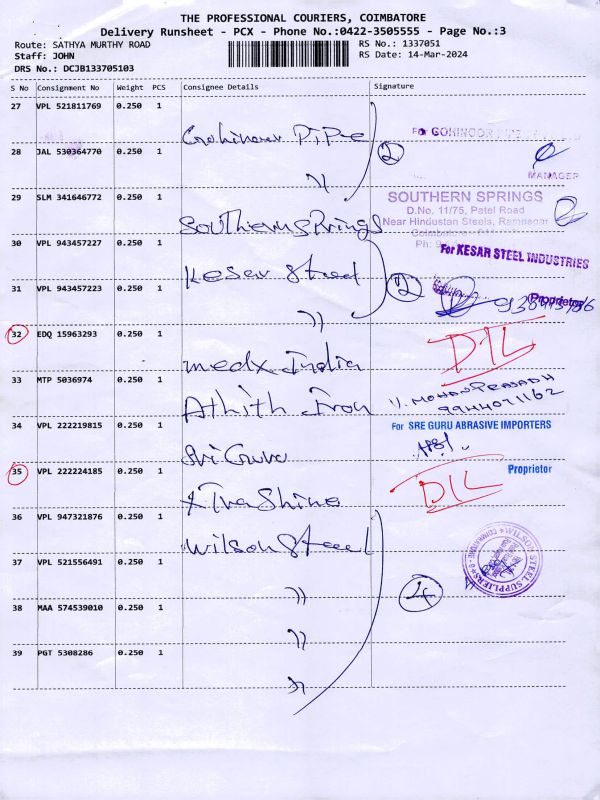 THE PROFESSIONAL COURIERS, COIMBATORE
Delivery Runsheet - PCX - Phone No.:0422-3505555 - Page No.:3
Route: SATHYA MURTHY ROAD RS No.: 1337051
Staff: JOHN RS Date: 14-Mar-2024
DRS No.: DCJB133705103
S No Consignment No Weight PCS Consignee Details Signature
27 VPL 521811769 0.250 1 Gohinoor Pipe
For GOHINOOR
28 JAL 530364770 0.250 1 〃 2
MANAGER
29 SLM 341646772 0.250 1 Southern Springs
SOUTHERN SPRINGS
D.No. 11/75, Patel Road
Near Hindustan Steels, Ramnagar
Ph:
30 VPL 943457227 0.250 1 Kesar Steel
For KESAR STEEL INDUSTRIES
31 VPL 943457223 0.250 1 〃 2
Proprietor
32 EDQ 15963293 0.250 1 medx India DIL
33 MTP 5036974 0.250 1 Athith Iron V. MOHAN PRASADH
9944071162
34 VPL 222219815 0.250 1 Sri Guru
For SRE GURU ABRASIVE IMPORTERS
Proprietor
35 VPL 222224185 0.250 1 XTra Shine DIL
36 VPL 947321876 0.250 1 Wilson Steel
WILSON STEEL SUPPLIERS
37 VPL 521556491 0.250 1 〃 4
38 MAA 574539010 0.250 1 〃
39 PGT 5308286 0.250 1 〃